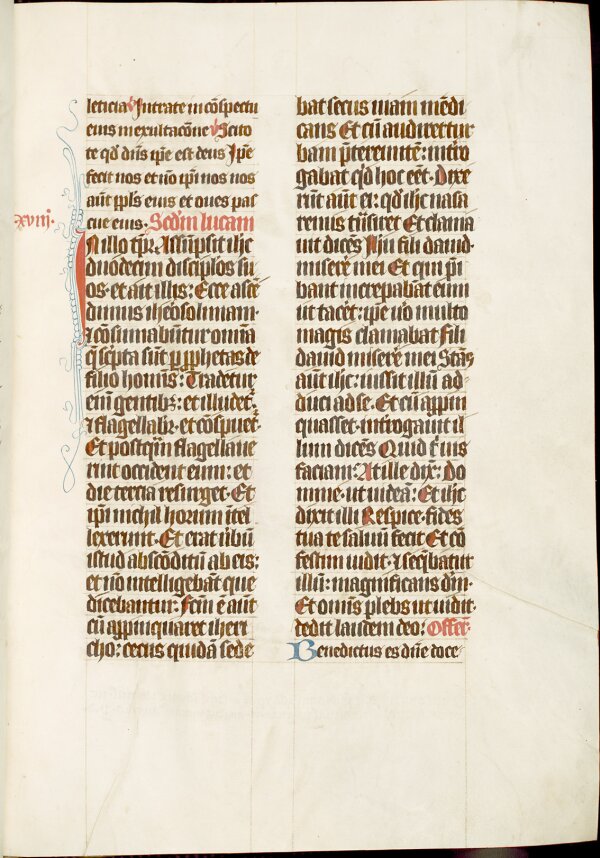 leticia ℣ Intrate in cōspectu
eius in exultacōne ℣ Scito
te qđ dn̄s ip̄e est deus Ip̄e
fecit nos et nō ip̄i nos nos
aūt ppl̄s eius et oues pas
cue eius. Scd̄m lucam
xviij.
In illo tp̄r. Assūpsit ihc̄
duodecim disciplos su
os. et ait illis: Ecce ascē
dimus iherosolimam.
⁊ cōsumabūntur omīa
q̄ sc̄pta sūt p ꝓphetas de
filio hominis: Tradetur
eīm gentibꝫ: et illudet᷑.
⁊ flagellabit᷑. et cōspuet᷑.
Et postqū flagellaue
rint occident eum: et
die tercia resurget. Et
ip̄i nichil horum ītel
lexerunt. Et erat ūbū
istud abscōditū ab eis:
et nō intelligebāt que
dicebantur. Fcm̄ ē aūt
cū appīnquaret iheri
cho: cecus quidā sede
bat secus uiam mēdi
cans Et cū audiret tur
bam p̄tereuntē: intro
gabat qd̄ hoc eēt. Dixe
rūt aūt ei: qđ ihc̄ nasa
renus trūsiret Et clama
uit dicēs Ihū fili dauid
miserē mei Et qui p̄i
bant increpabāt eum
ut tacēt: ip̄e uō multo
magis clamabat Fili
dauid miserē mei Stās
aūt ihc̄: iussit illū ad
duci ad se. Et cū appin
quasset. introgauit il
lum dicēs Quid t̄ uis
faciam: At ille dix̄: Do
mine. ut uideā: Et ihc̄
dixit illi Respice. fides
tua te saluū fecit Et cō
festim uidit. ⁊ seqbatur
illū: magnificans dm̄.
Et omīs plebs ut uidit.
dedit laudem deo: Offert̄.
Benedictus es dn̄e doce